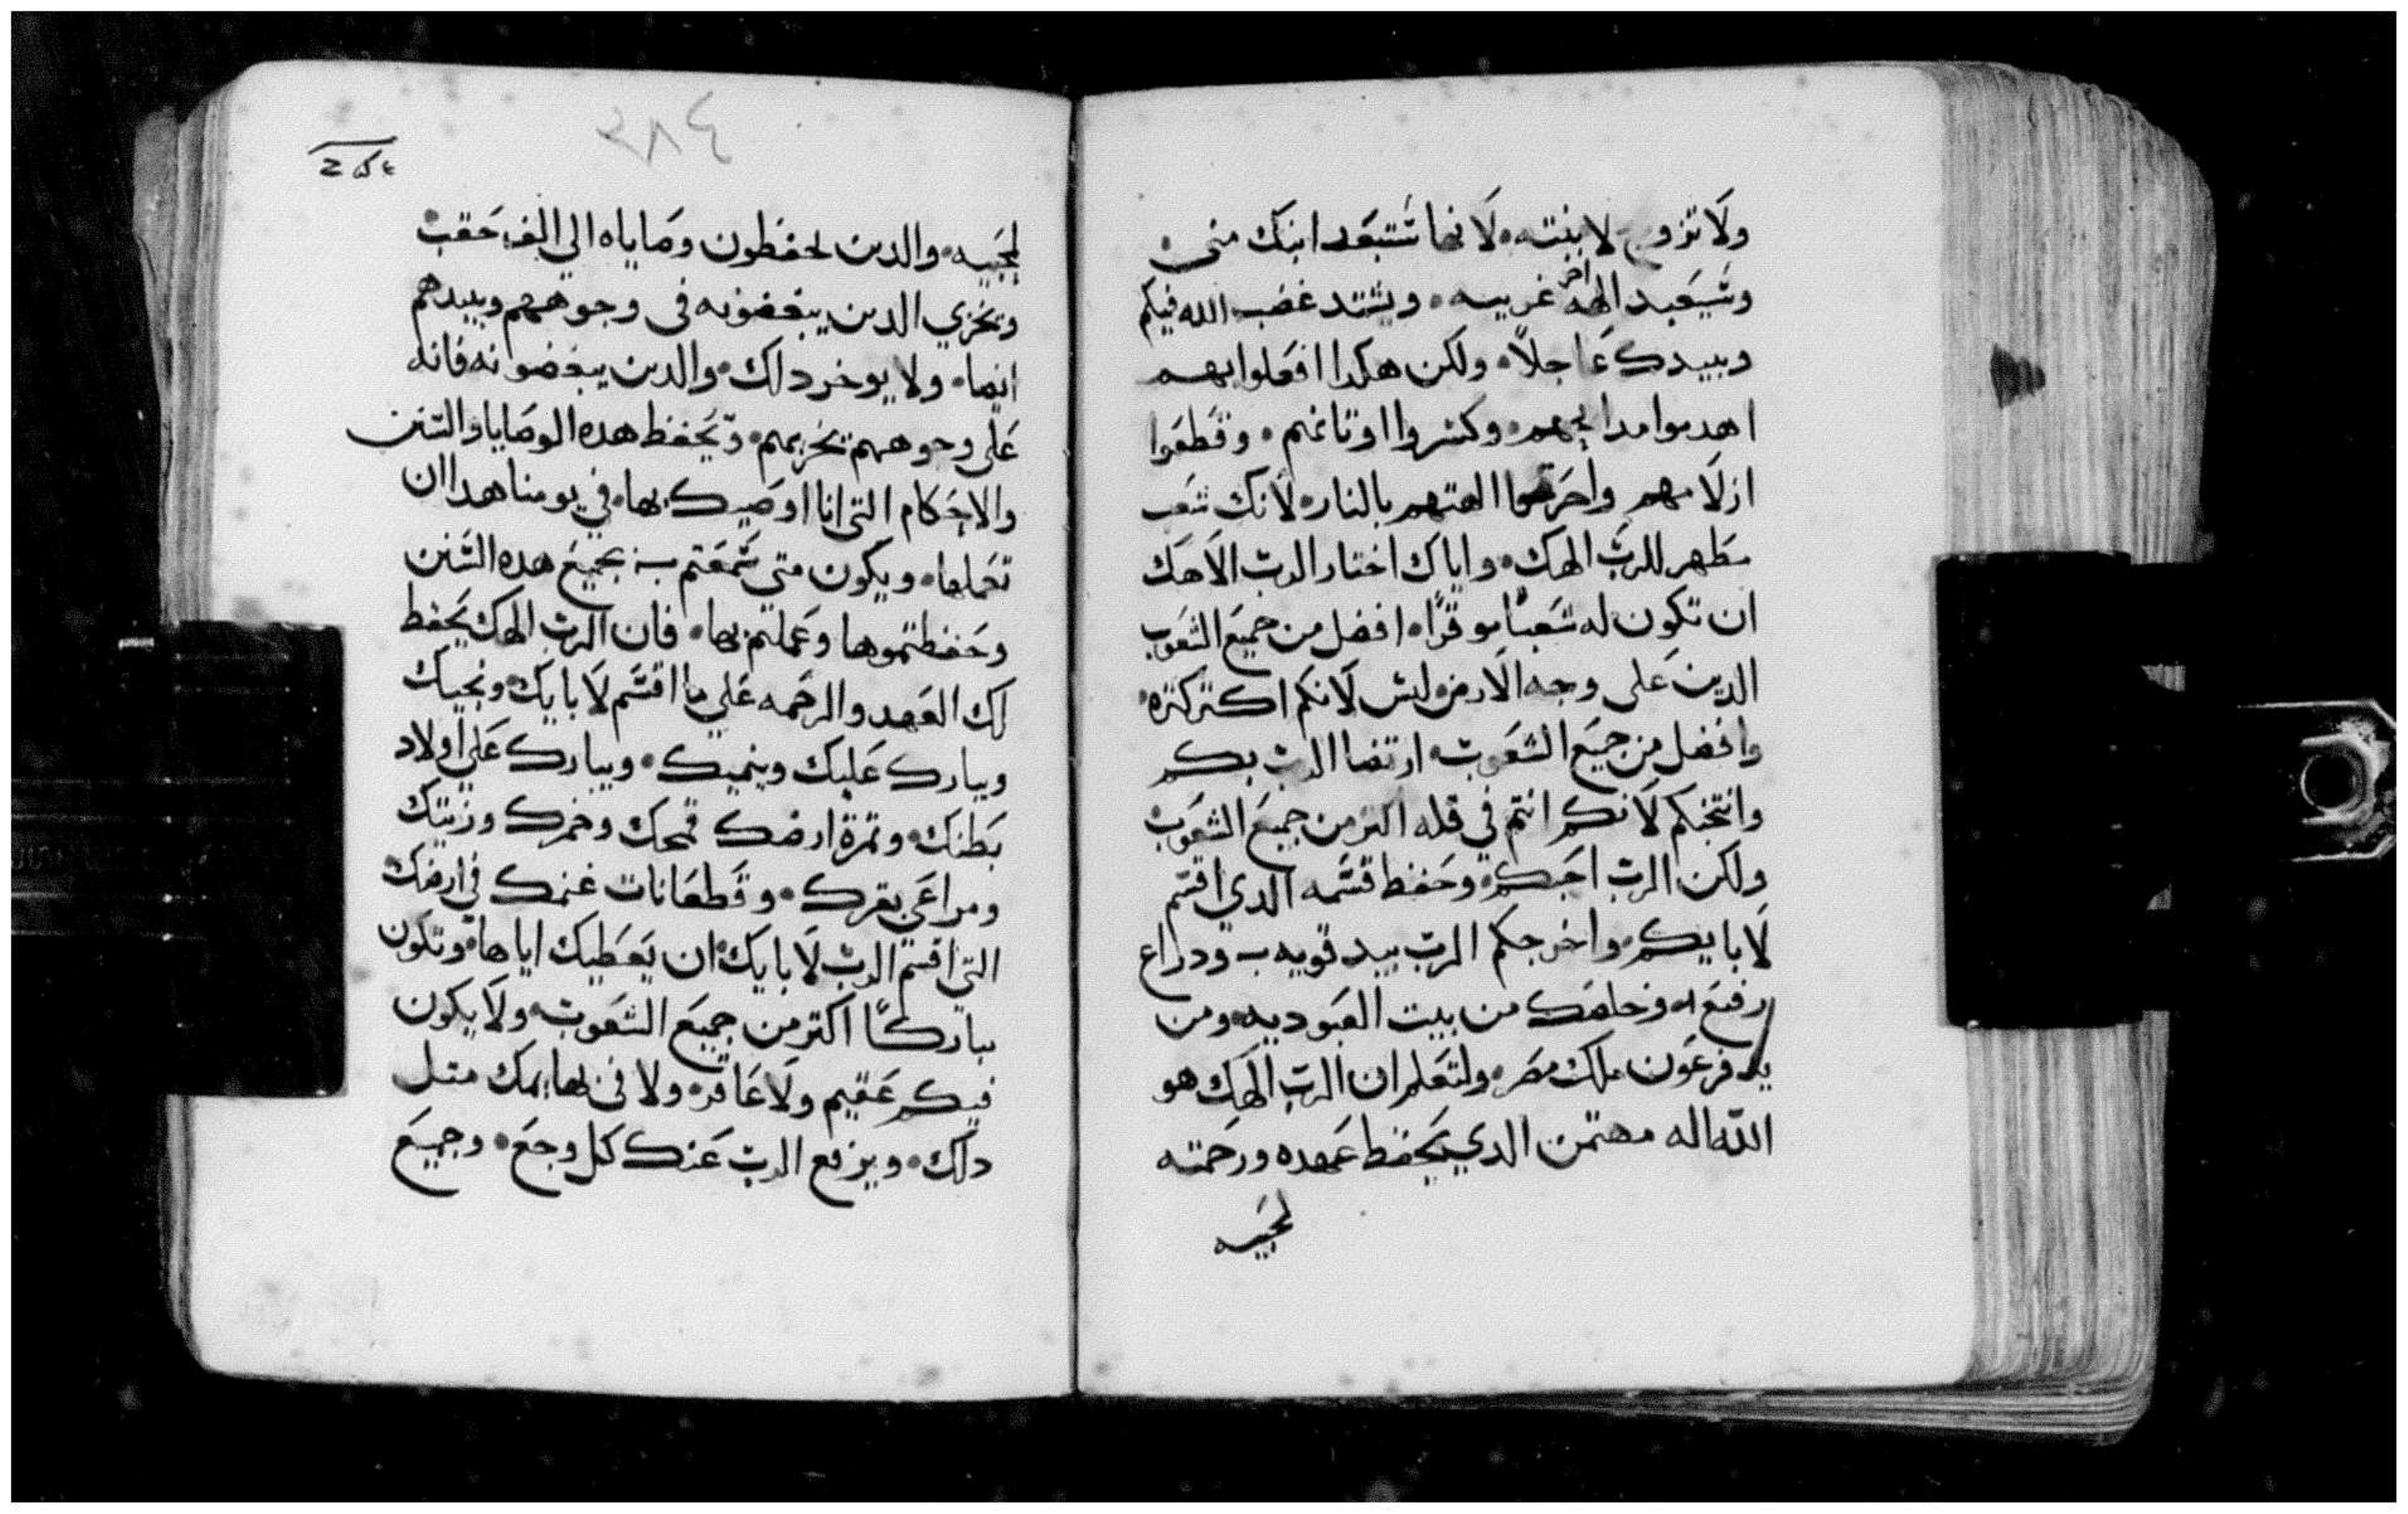 ولا تزوج لابنته لانها ستبعد ابنك مني
وسيعبد الهه اخر غريبه ويشتد غضب الله فيكم
ويبيدك عاجلاً ولكن هكدا افعلوا بهم
اهدموا مدابحهم وكسروا اوتانهم وقطعوا
ازلامهم واحرقوا الهتهم بالنار لانك شعب
مطهر للرب الهك واياك اختار الرب الاهك
ان تكون له شعبًا موقرًا افضل من جميع الشعوب
الدين على وجه الارض ليس لانكم اكتر كتره
وافضل من جميع الشعوب ارتضا الرب بكم
وانتخبكم لانكم انتم في قله اكتر من جميع الشعوب
ولكن الرب احبكم وحفظ قسمه الدي اقسم
لابايكم واخرجكم الرب بيد قويه ودراع
رفيع وخلصك من بيت العبوديه ومن
يد فرعون ملك مصر ولتعلم ان الرب الهك هو
الله اله مهتمن الدي يحفظ عهده ورحمته
لمحبيه
٣٨٤
لمحبيه والدين يحفظون وصاياه الي الف حقب
ويخزي الدين يبغضونه في وجوههم ويبيدهم
ايما ولا يوخر دلك والدين يبغضونه فانه
على وجوههم يخزيهم ويحفظ هده الوصايا والسنن
والاحكام التي انا اوصيك بها في يومنا هدا ان
تعملها ويكون متي سمعتم جميع هده السنن
وحفظتموها وعملتم بها فان الرب الهك يحفظ
لك العهد والرحمه علي ما اقسم لابايك ويحبك
ويبارك عليك وينميك ويبارك علي اولاد
بطنك وتمرة ارضك قمحك وخمرك وزيتك
ومراعي بقرك وقطعانات غنمك في ارضك
التي اقسم الرب لابايك ان يعطيك اياها وتكون
مباركًا اكتر من جميع الشعوب ولا يكون
فيكم عقيم ولا عاقر ولا في بهايمك متل
دلك وينزع الرب عنك كل وجع وجميع